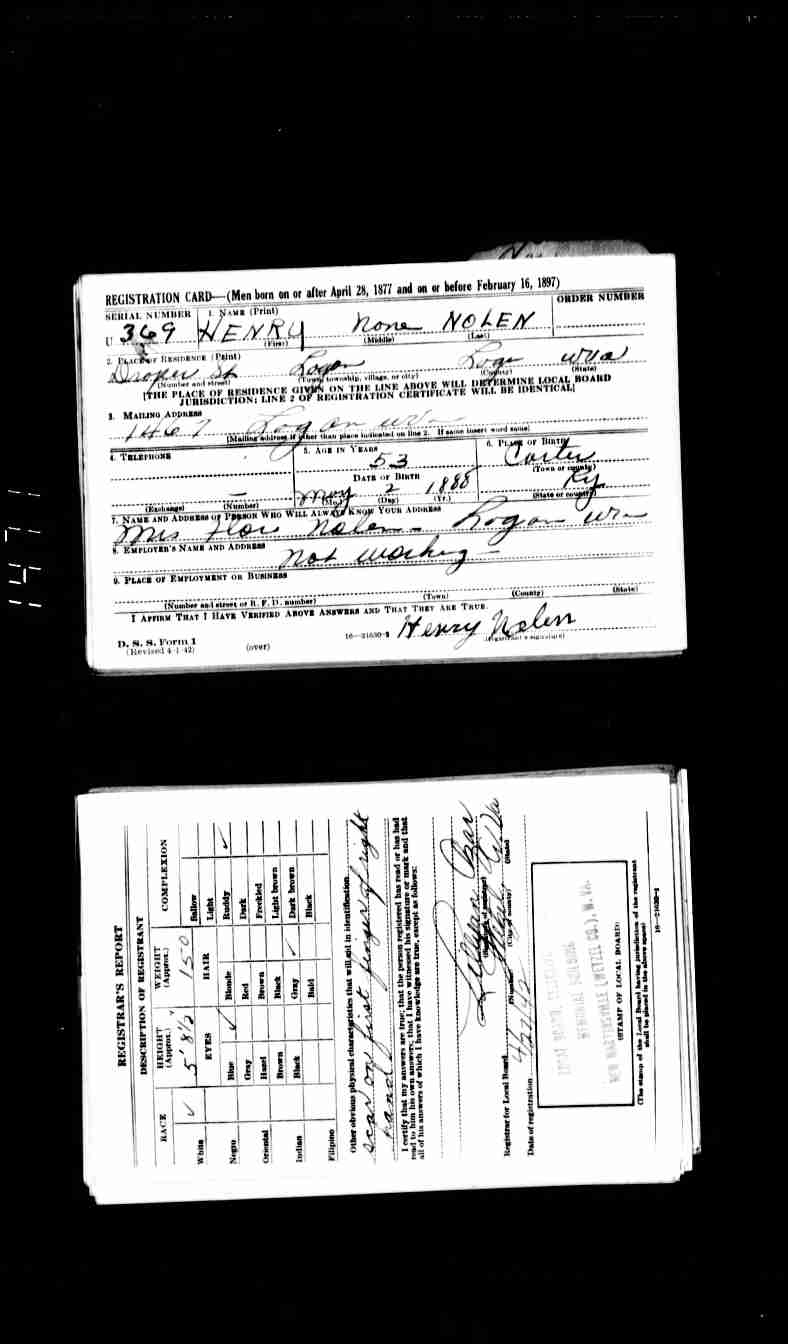 REGISTRATION CARD—(Men born on or after April 28, 1877 and on or before February 16, 1897)
SERIAL NUMBER 1. NAME (Print) ORDER NUMBER
U 369 HENRY None NOLEN
(First) (Middle) (Last)
2. PLACE OF RESIDENCE (Print)
Draper St Logan Loga W Va
(Number and street) (Town, township, village, or city) (County) (State)
[THE PLACE OF RESIDENCE GIVEN ON THE LINE ABOVE WILL DETERMINE LOCAL BOARD
JURISDICTION; LINE 2 OF REGISTRATION CERTIFICATE WILL BE IDENTICAL]
3. MAILING ADDRESS
1467 Logan
[Mailing address if other than place indicated on line 2. If same insert word same]
4. TELEPHONE 5. AGE IN YEARS 6. PLACE OF BIRTH
53 Carter
(Town or county)
DATE OF BIRTH
— May 2 1888 Ky
(Exchange) (Number) (Mo.) (Day) (Yr.) (State or country)
7. NAME AND ADDRESS OF PERSON WHO WILL ALWAYS KNOW YOUR ADDRESS
Mrs Nolen - Logan
8. EMPLOYER'S NAME AND ADDRESS
Not working —
9. PLACE OF EMPLOYMENT OR BUSINESS
(Number and street or R. F. D. number) (Town) (County) (State)
I AFFIRM THAT I HAVE VERIFIED ABOVE ANSWERS AND THAT THEY ARE TRUE.
D. S. S. Form 1
(Revised 4-1-42) (over) 16—21630-1 Henry Nolen
(Registrant's signature)
REGISTRAR'S REPORT
DESCRIPTION OF REGISTRANT
RACE HEIGHT (Approx.) WEIGHT (Approx.) COMPLEXION
White ✓ 5' 8 1/2 150 Sallow
EYES HAIR Light
Negro Blue ✓ Blonde Ruddy ✓
Gray Red Dark
Oriental Hazel Brown Freckled
Brown Black Light brown
Indian Black Gray ✓ Dark brown
Bald Black
Filipino
Other obvious physical characteristics that will aid in identification
scar on first finger of right
hand
I certify that my answers are true; that the person registered has read or has had
read to him his own answers; that I have witnessed his signature or mark and that
all of his answers of which I have knowledge are true, except as follows:
Registrar for Local Board
(Number) (City or county) (State)
Date of registration 4/27/42
LOCAL BOARD
MEMORIAL BUILDING
NEW MARTINSVILLE (WETZEL CO.), W. VA.
(STAMP OF LOCAL BOARD)
(The stamp of the Local Board having jurisdiction of the registrant
shall be placed in the above space)
16—21630-1